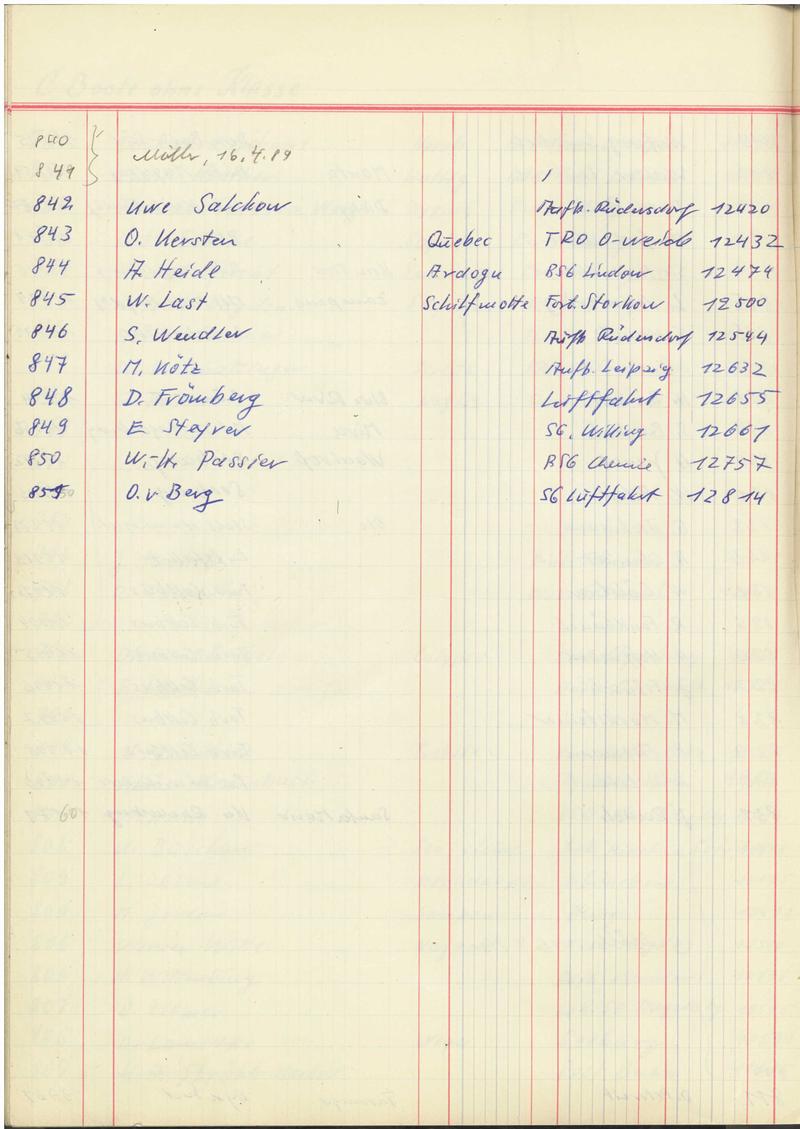 840
849 } Möller, 16.4.89
842 Uwe Salchow Aufb. Rüdersdorf 12420
843 O. Kersten Quebec TRO O-weide 12432
844 A. Heide Ardogu BSG Lindow 12474
845 W. Last Schilfmotte Fort. Storkow 12500
846 S. Wendler Aufb Rüdersdorf 12544
847 M. Kötz Aufb. Leipzig 12632
848 D. Frömberg Luftfahrt 12655
849 E Steyrer SG. 12661
850 W.-H. Passier BSG Chemie 12757
851 O. v Berg SG Luftfahrt 12814